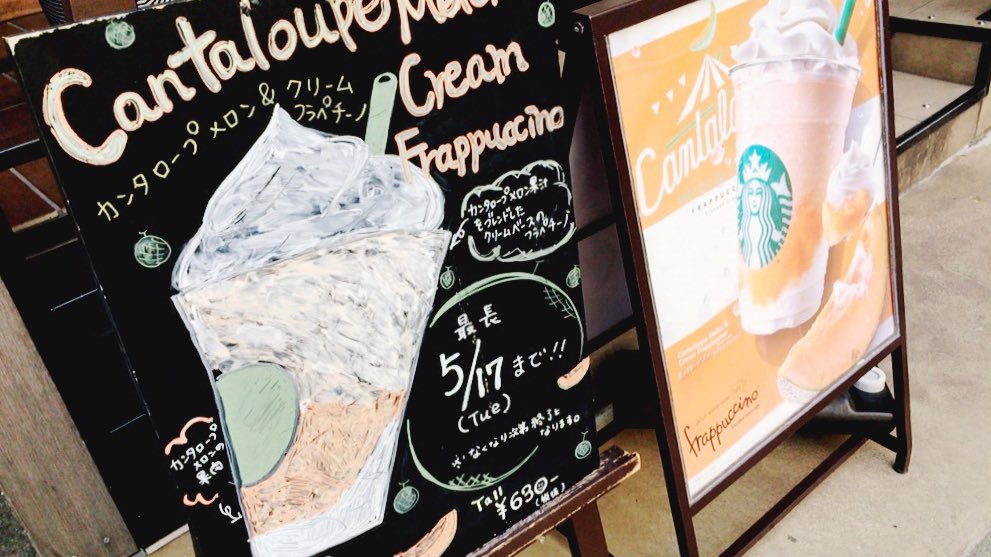 Cantaloupe Melon
カンタロープメロン & クリーム
フラペチーノ
Cream
Frappuccino
カンタロープメロン果汁
をブレンドした
クリームベースの
フラペチーノ
最長
5/17まで!!
(Tue)
なくなり次第終了と
なります。
Tall
¥630-
(税抜)
カンタロープ
メロンの
果肉
Cantalo
FRAPPUCCI
Cantaloupe Melon &
Cream Frappuccino
frappuccino